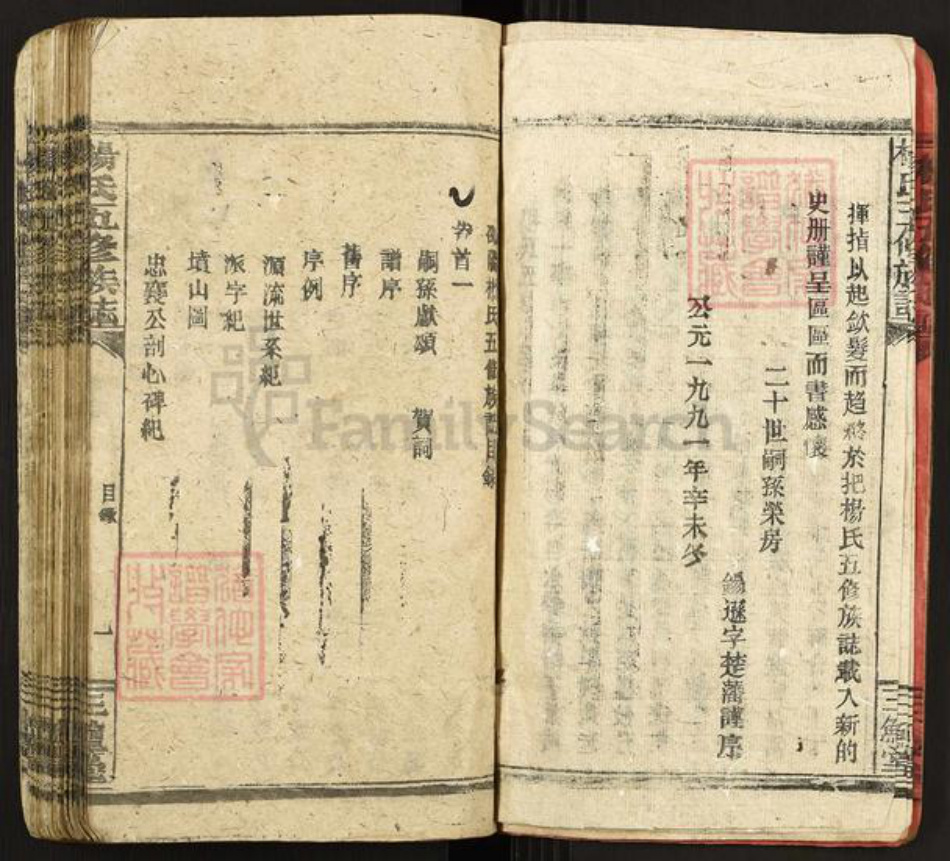 楊氏五修族誌
揮指以起歛髮而趨終於把楊氏五修族誌載入新的
史册謹呈區區而書感懷
二十世嗣孫榮房
錫遜字楚藩謹序
公元一九九一年辛未冬
三鱣堂
楊氏五修族誌目錄
卷首一
嗣孫獻頌 賀詞
譜序
舊序
序例
源流世系紀
派字紀
墳山圖
忠襄公剖心碑紀
楊氏五修族誌
目錄
一
三鱣堂
FamilySearch